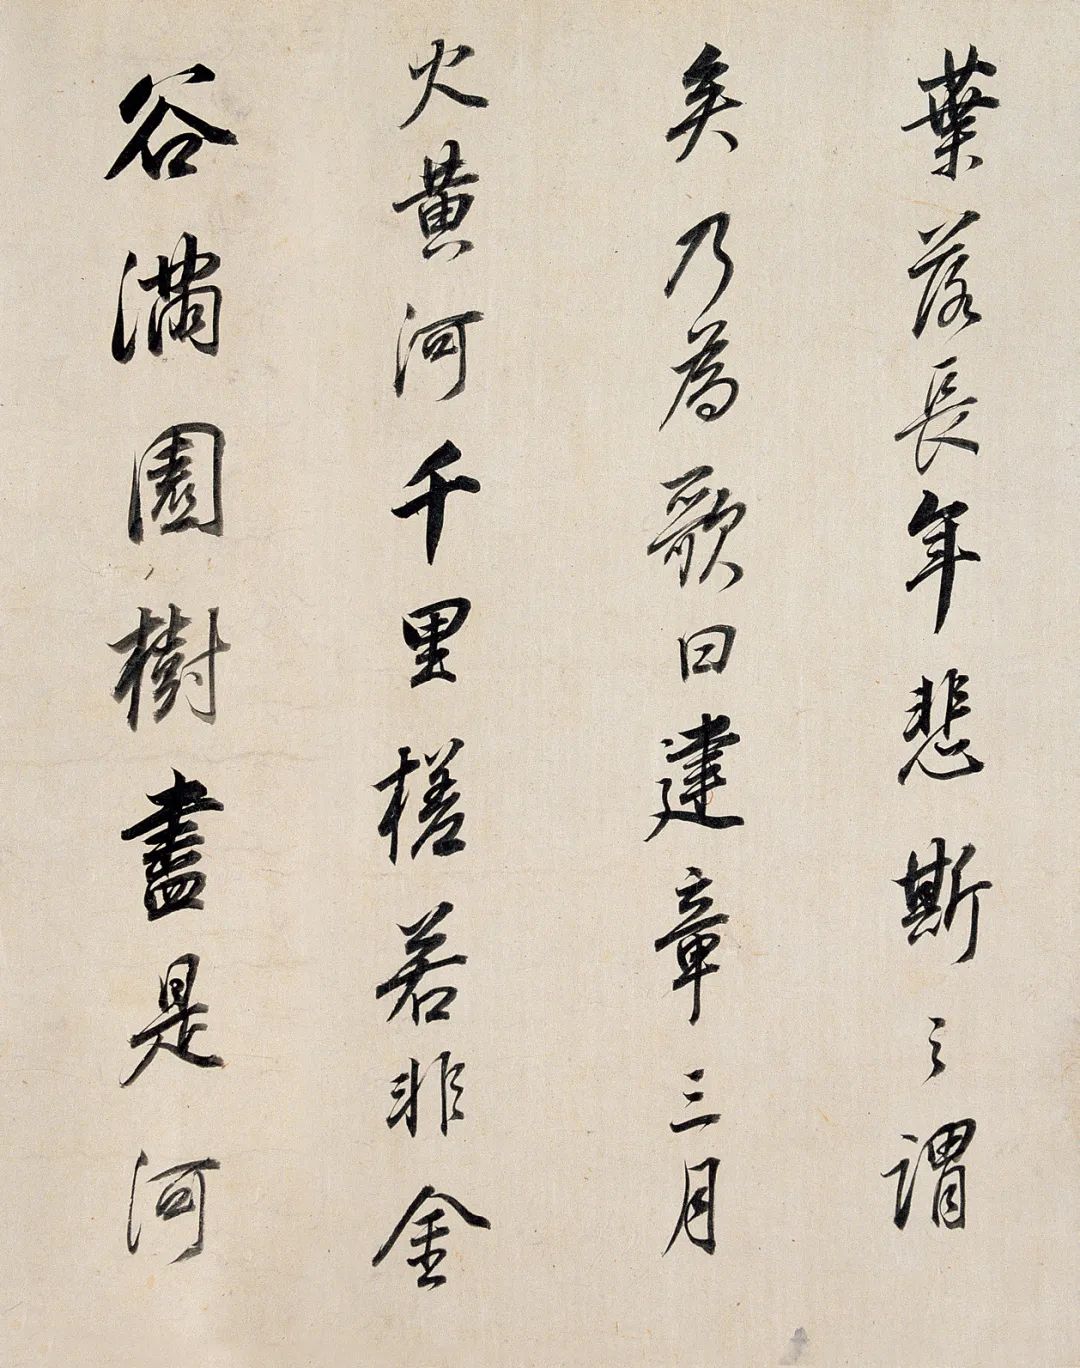 葉落長年悲斯之謂
矣乃為歌曰建章三月
火黃河千里槎若非金
谷滿園樹盡是河